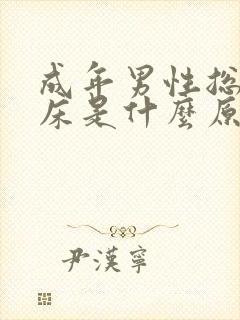 成年男性总
床是什麼原
尹漢寧